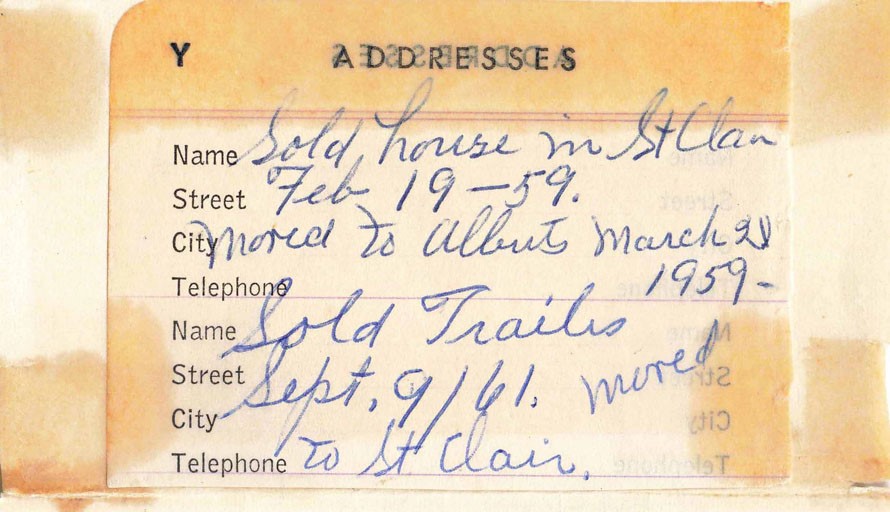 Y ADDRESSES
Name Sold house in St Clair
Street Feb 19-59.
City Moved to Alberts March 28
Telephone 1959-
Name Sold Trailer
Street Sept. 9/61. moved
City
Telephone to St Clair.